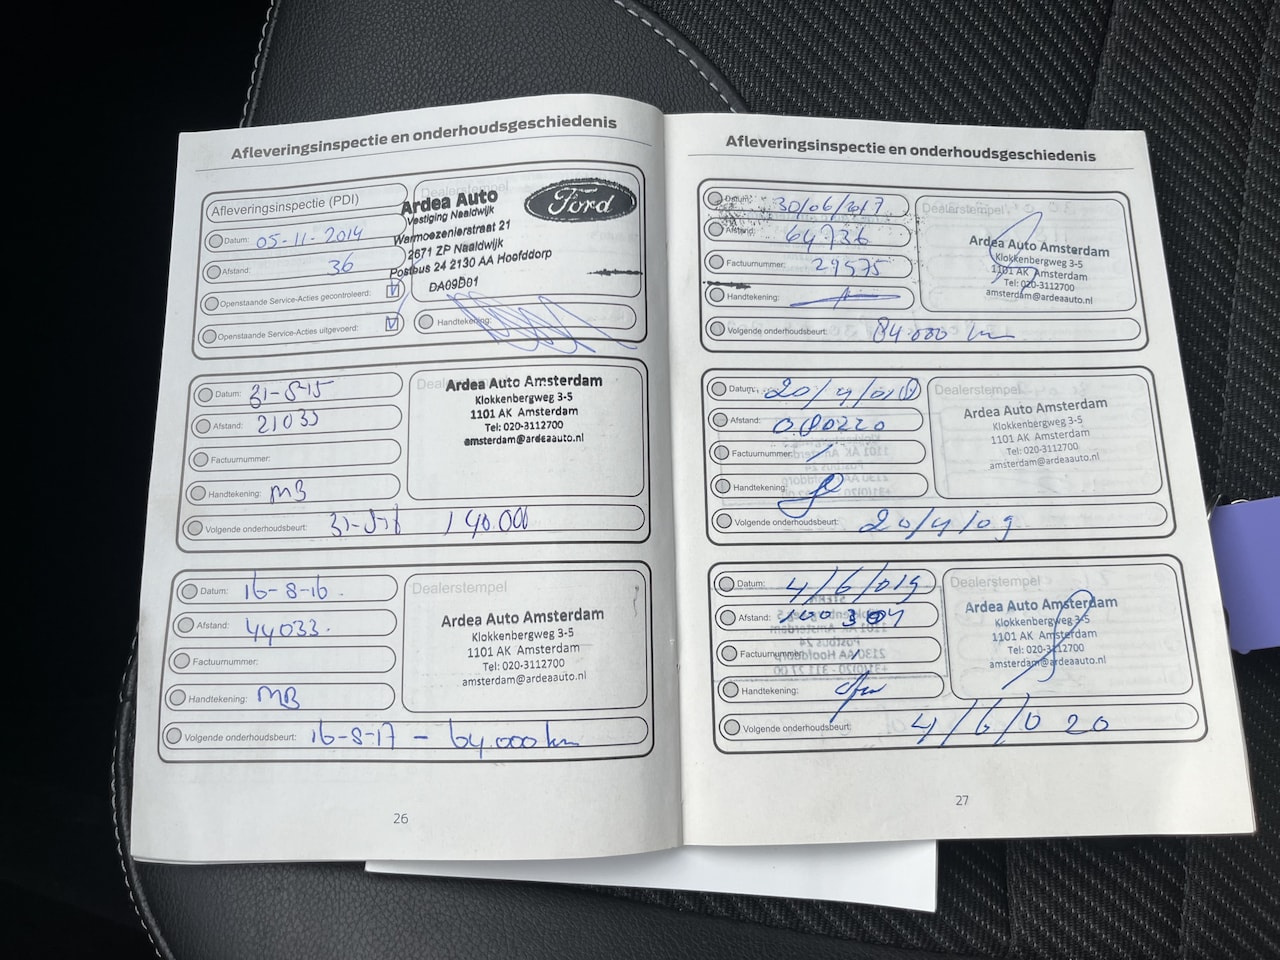 Afleveringsinspectie en onderhoudsgeschiedenis
Afleveringsinspectie (PDI)
Datum: 05-11-2014
Afstand: 36
Openstaande Service-Acties gecontroleerd:
Openstaande Service-Acties uitgevoerd:
Dealerstempel
Ford
Ardea Auto
Vestiging Naaldwijk
Warmoezenierstraat 21
2671 ZP Naaldwijk
Postbus 24 2130 AA Hoofddorp
DA09D01
Handtekening:
Datum: 31-8-15
Afstand: 21033
Factuurnummer:
Handtekening: MB
Dealerstempel
Ardea Auto Amsterdam
Klokkenbergweg 3-5
1101 AK Amsterdam
Tel: 020-3112700
amsterdam@ardeaauto.nl
Volgende onderhoudsbeurt:
Datum: 16-8-16.
Afstand: 44033.
Factuurnummer:
Handtekening: MB
Dealerstempel
Ardea Auto Amsterdam
Klokkenbergweg 3-5
1101 AK Amsterdam
Tel: 020-3112700
amsterdam@ardeaauto.nl
Volgende onderhoudsbeurt: 16-8-17 - 64.000 km
26
Afleveringsinspectie en onderhoudsgeschiedenis
Datum: 30/06/2017
Afstand: 64736
Factuurnummer: 29575
Handtekening:
Dealerstempel
Ardea Auto Amsterdam
Klokkenbergweg 3-5
1101 AK Amsterdam
Tel: 020-3112700
amsterdam@ardeaauto.nl
Volgende onderhoudsbeurt: 84.000 km
Datum: 20/4/01
Afstand: 080220
Factuurnummer:
Handtekening:
Dealerstempel
Ardea Auto Amsterdam
Klokkenbergweg 3-5
1101 AK Amsterdam
Tel: 020-3112700
amsterdam@ardeaauto.nl
Volgende onderhoudsbeurt: 20/4/09
Datum: 4/6/019
Afstand: 100307
Factuurnummer:
Handtekening:
Dealerstempel
Ardea Auto Amsterdam
Klokkenbergweg 3-5
1101 AK Amsterdam
Tel: 020-3112700
amsterdam@ardeaauto.nl
Volgende onderhoudsbeurt: 4/6/020
27